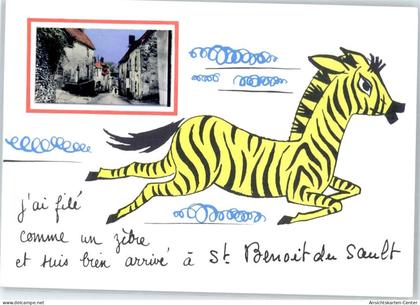 j'ai filé
comme un zèbre
et suis bien arrivé à St Benoit du Sault
Ansichtskarten-Center